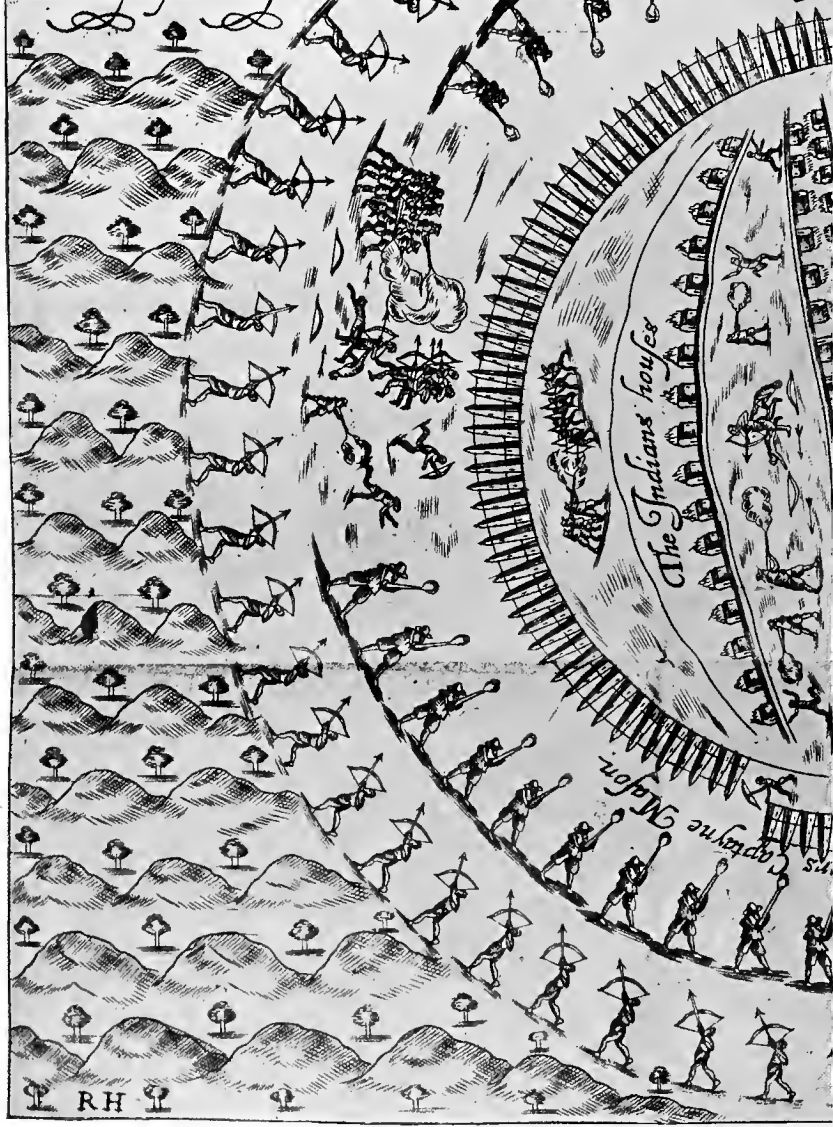 The Indians houſes
Captayne Maſon
rs
RH